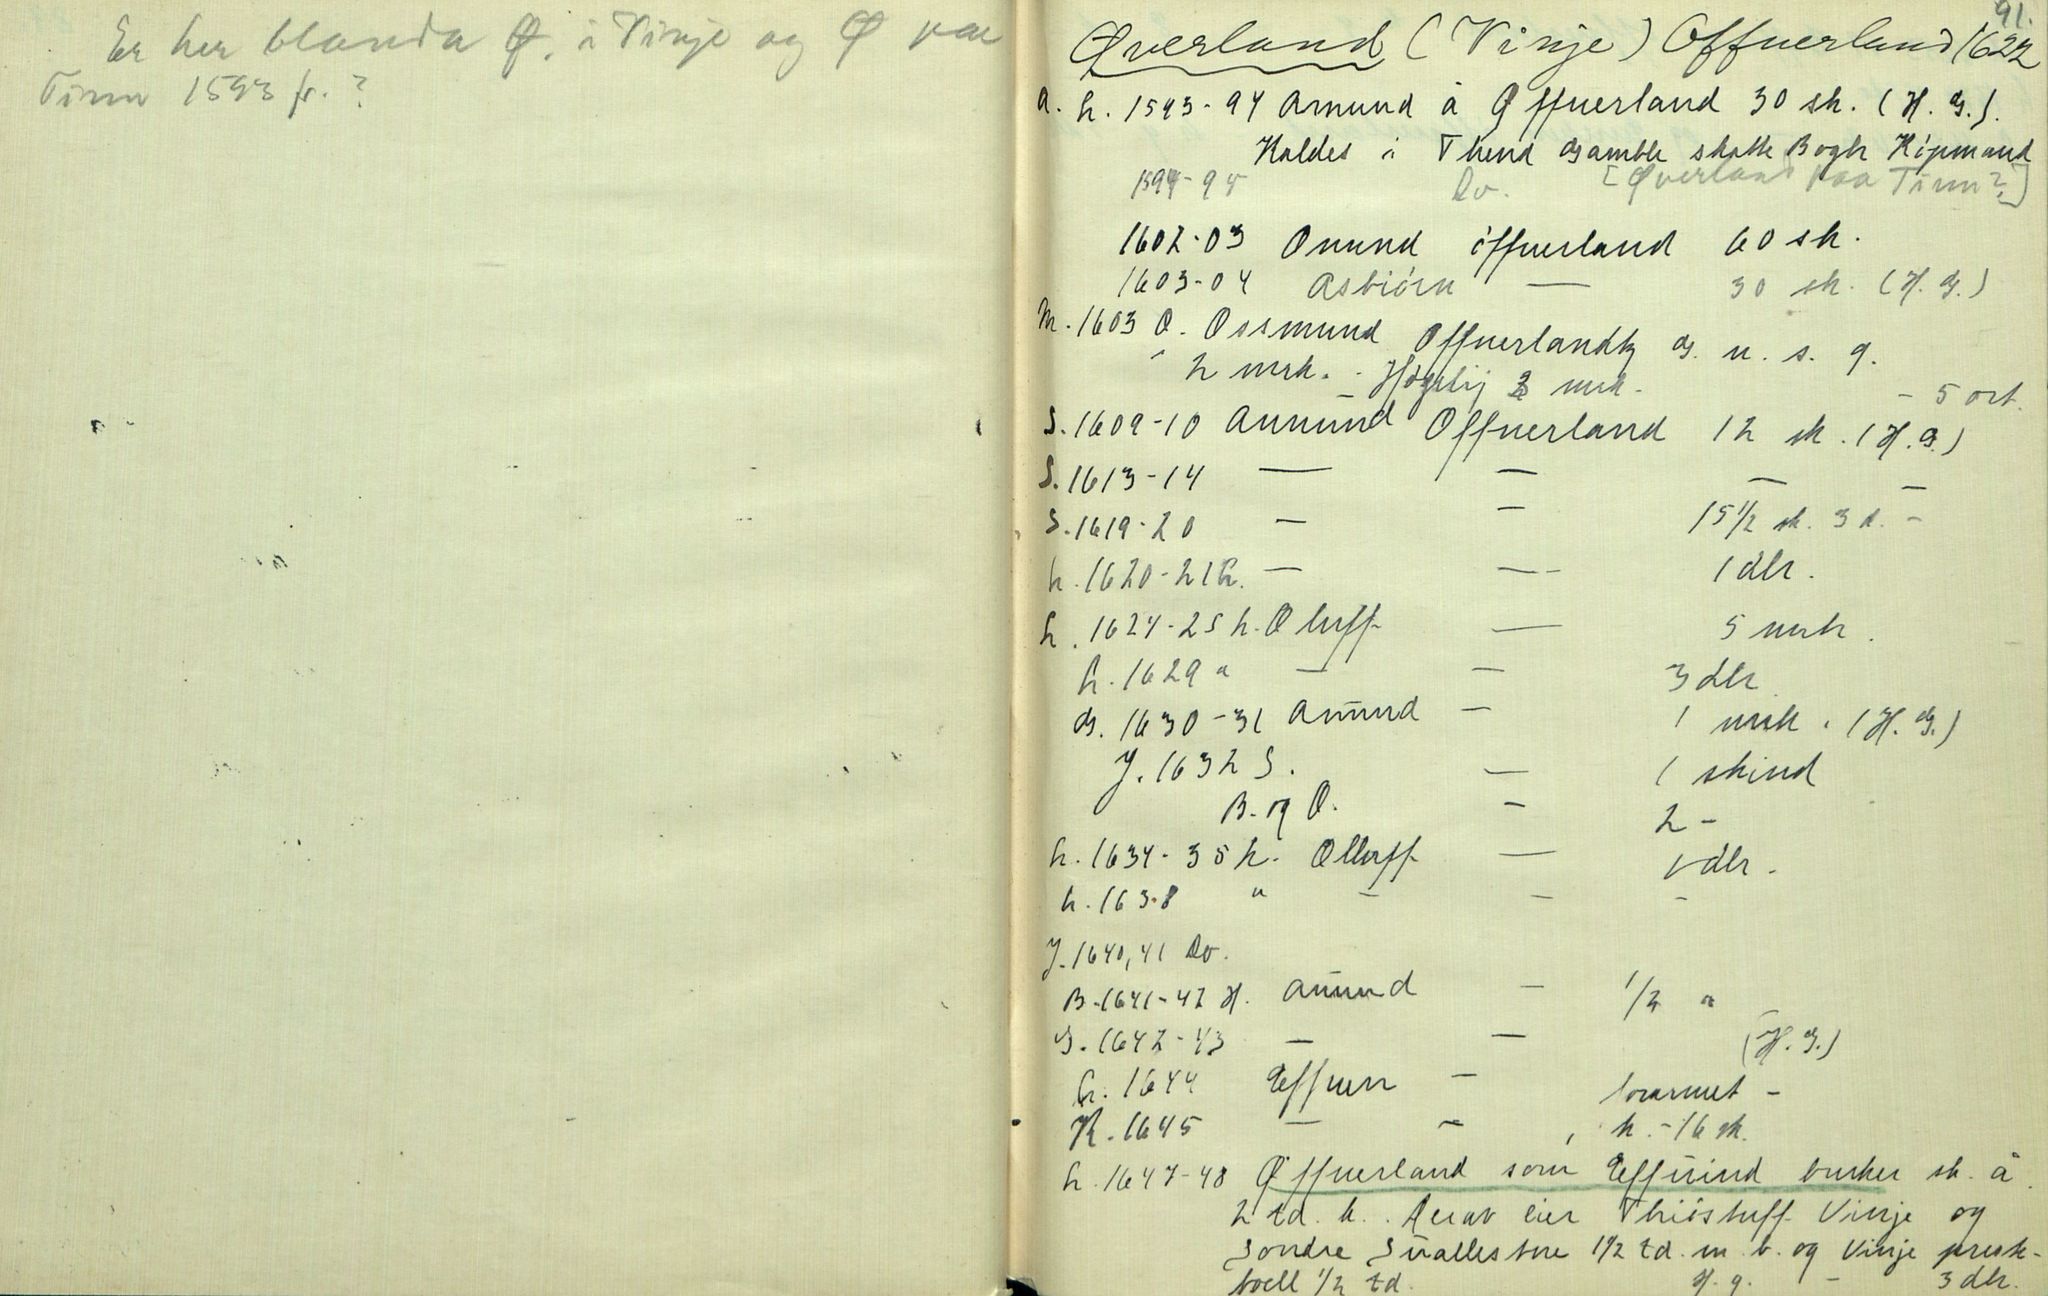 Er her blanda Ø. i Vinje og Ø paa
Tinn 1593 fr. ?
91.
Øverland (Vinje) Offuerland 1622
a. h. 1593-94 Amund å Øffuerland 30 sk. (H. G.).
Kaldes i Thend Gamble skatte Bogh
1594-95 Do. [Øverland paa Tinn?]
1602-03 Onund öffuerland 60 sk.
1603-04 Asbiörn — 30 sk. (H. G.)
M. 1603 O. Ossmund Offuerlandh G. u. s. g.
2 mrk. - 3 mrk. - 5 ort.
S. 1609-10 Amund Offuerland 12 sk. (H. G.)
S. 1613-14 — — — —
S. 1619-20 — — 15 1/2 sk. 3 d. -
h. 1620-21 — — 1 dlr.
h. 1624-25 h. Oluff — 5 mrk.
h. 1629 " — — 3 dlr
G. 1630-31 Amund — 1 mrk. (H. G.)
J. 1632 S. — 1 skind
B. og O. — 2 -
h. 1634-35 h. Olluff — 1 dlr.
h. 1638 " — — -
J. 1640, 41 Do.
B. 1641-42 H. Amund — 1/2 "
S. 1642-43 — — (H. G.)
h. 1644 Effuen — -
K. 1645 — — , h. - 16 sk.
h. 1647-48 Øffuerland som Effuind bruker sk. å
2 td. k. Derav eier Thiöstuff Vinje og
Sondre 1 1/2 td. m. b. og Vinje prest-
boell 1/2 td. H. g. - 3 dlr.